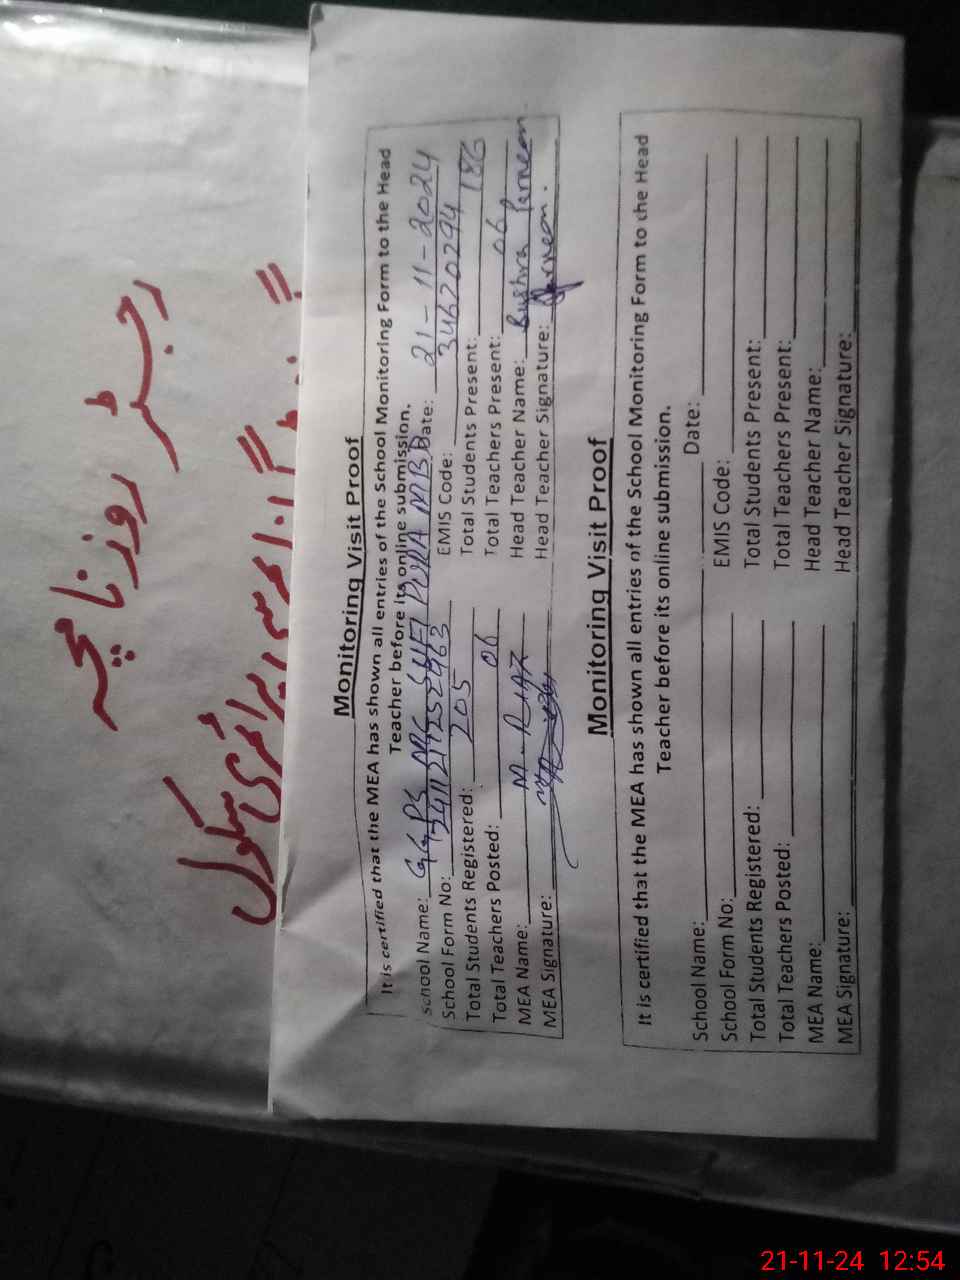 رجسٹر روزنامچہ
پرائمری سکول
Monitoring Visit Proof
It is certified that the MEA has shown all entries of the School Monitoring Form to the Head
Teacher before its online submission.
School Name: GGPS SUFI PURA MBD Date: 21-11-2024
School Form No: EMIS Code: 34620294
Total Students Registered: 205 Total Students Present: 186
Total Teachers Posted: 06 Total Teachers Present: 06
MEA Name: M. RIAZ Head Teacher Name: Bushra Parneon
MEA Signature: Head Teacher Signature: Parneon.
Monitoring Visit Proof
It is certified that the MEA has shown all entries of the School Monitoring Form to the Head
Teacher before its online submission.
School Name: Date:
School Form No: EMIS Code:
Total Students Registered: Total Students Present:
Total Teachers Posted: Total Teachers Present:
MEA Name: Head Teacher Name:
MEA Signature: Head Teacher Signature:
21-11-24 12:54